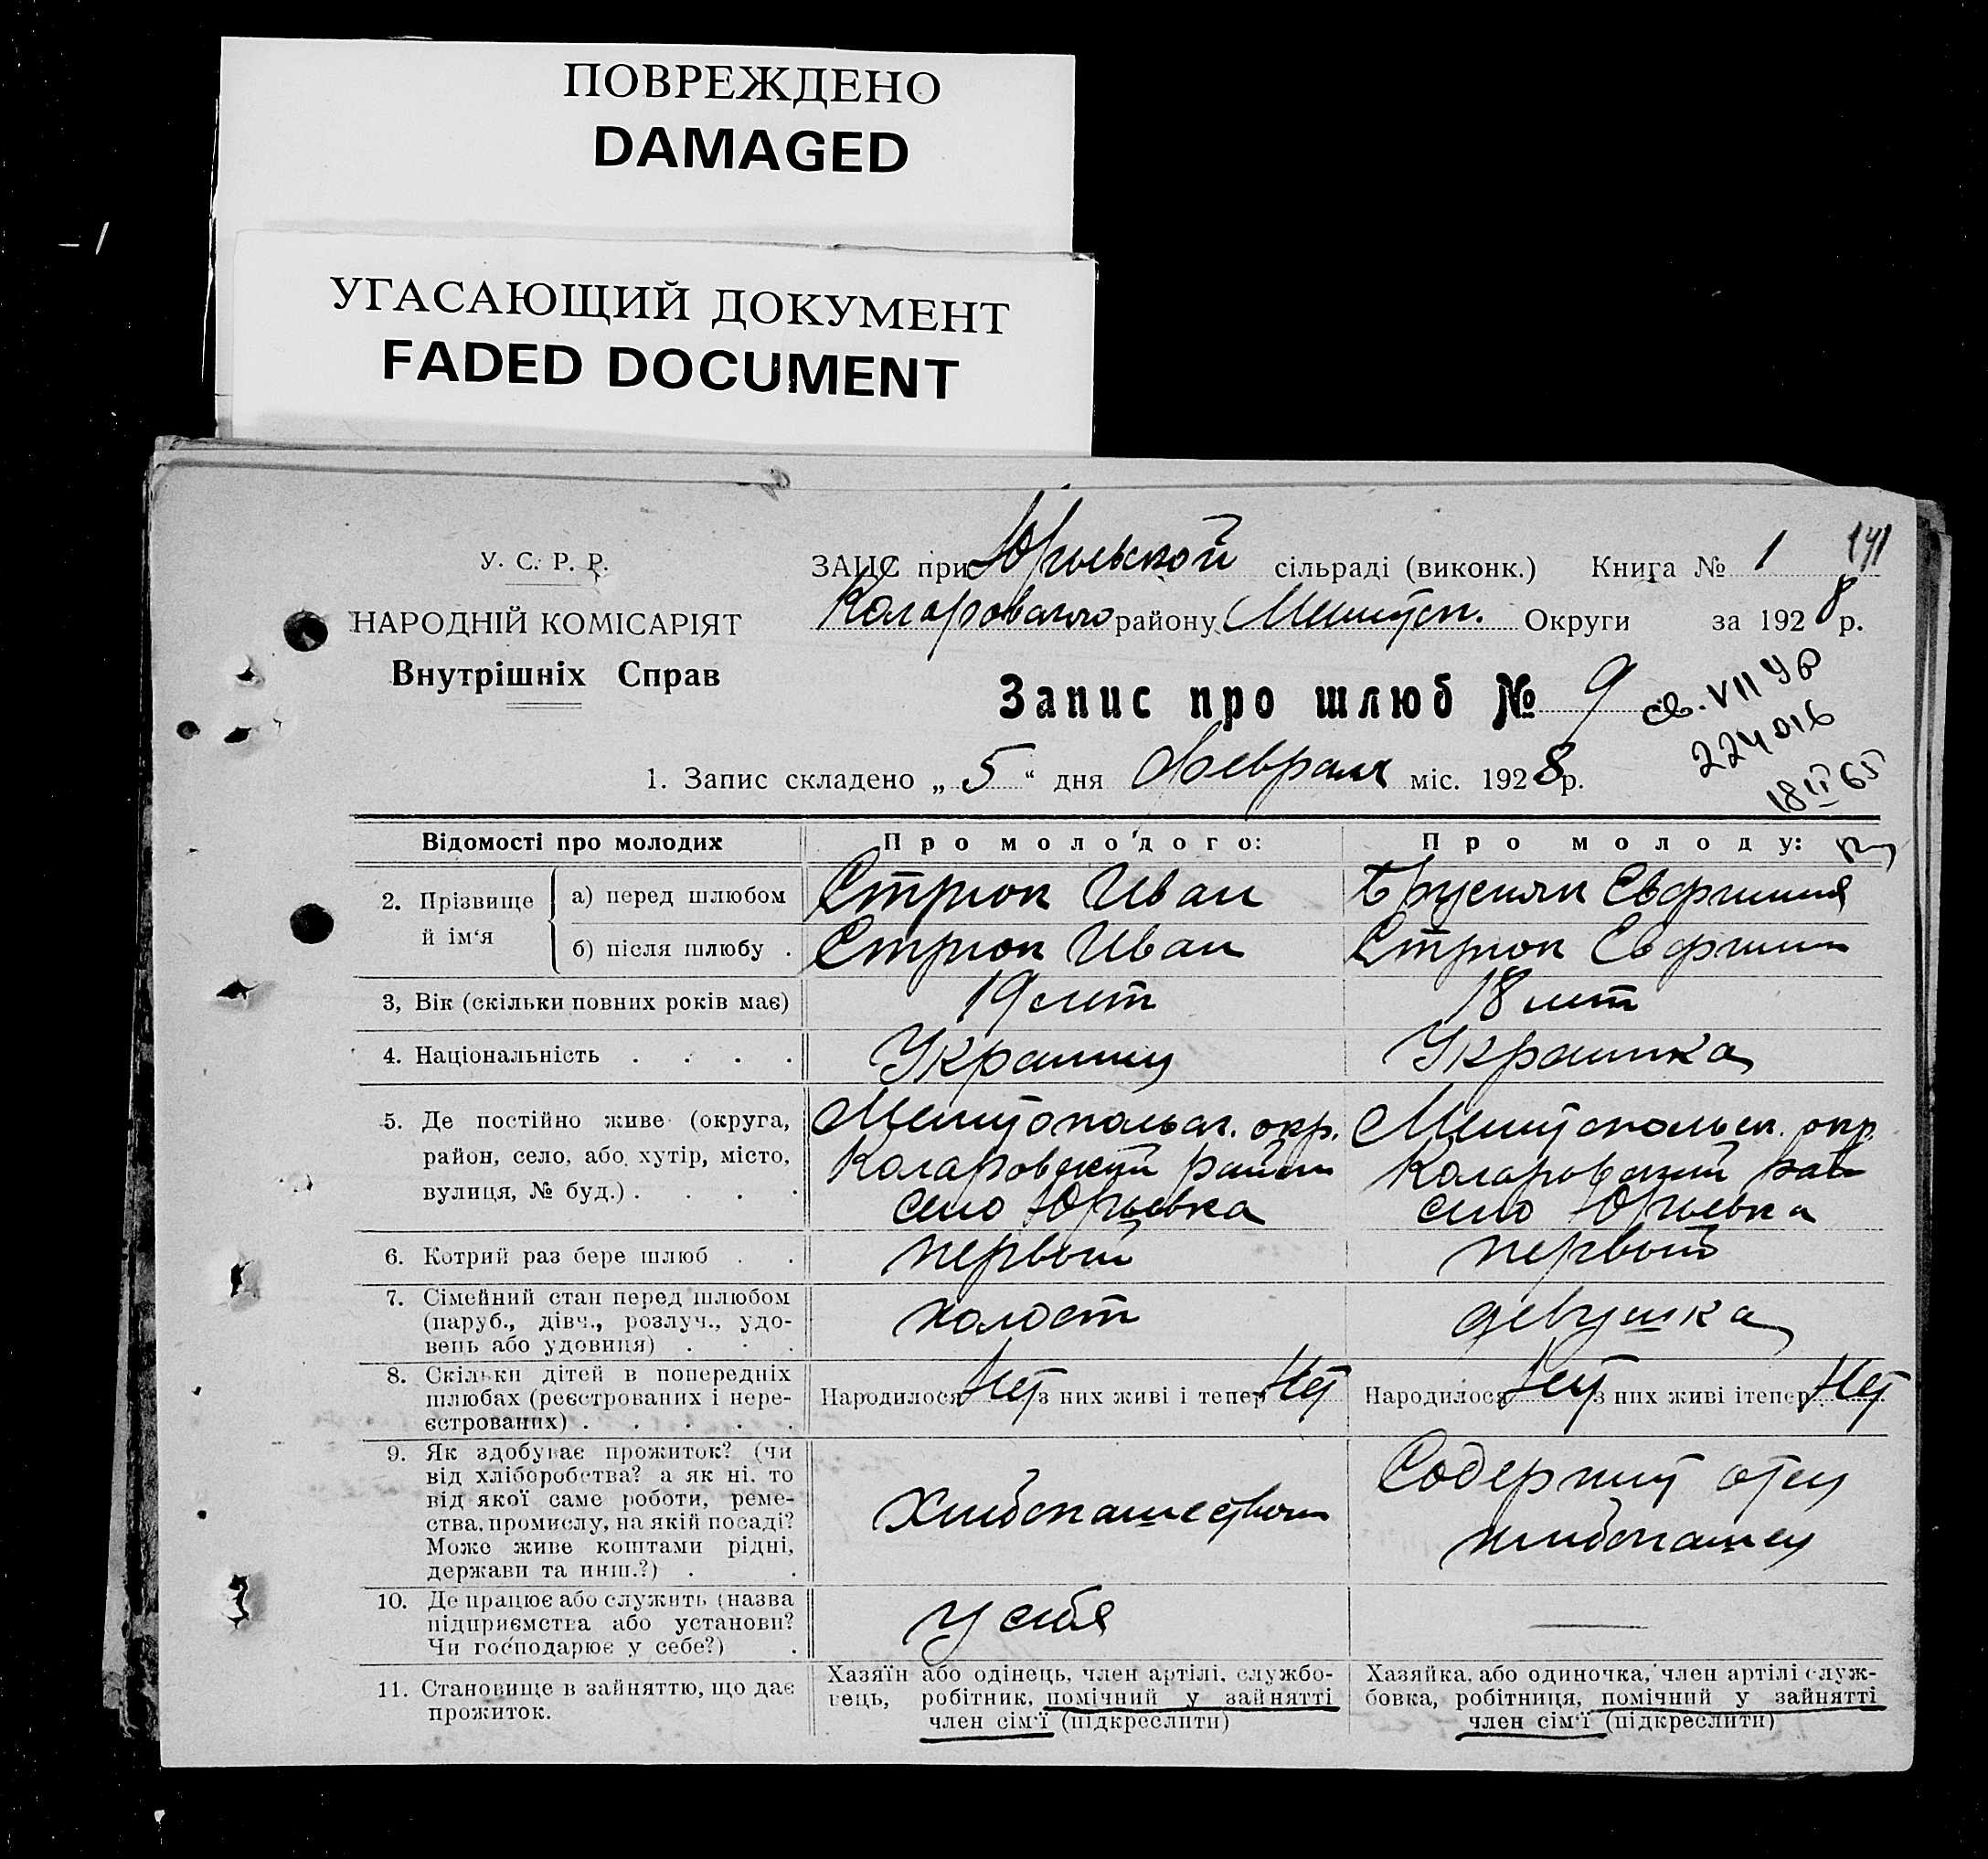 ПОВРЕЖДЕНО
DAMAGED
УГАСАЮЩИЙ ДОКУМЕНТ
FADED DOCUMENT
У. С. Р. Р.
НАРОДНІЙ КОМІСАРІЯТ
Внутрішніх Справ
ЗАПС при Юрьевской сільраді (виконк.) Книга № 1 141
Коларовского району Мелитоп. Округи за 1928 р.
Запис про шлюб № 9
св. VII УР
224016
18 II 65
1. Запис складено „ 5 “ дня Февраля міс. 1928 р.
Відомості про молодих Про молодого: Про молоду:
2. Прізвище й ім‘я
а) перед шлюбом Стрюк Иван Евфимия
б) після шлюбу . Стрюк Иван Стрюк
3, Вік (скільки повних років має) 19 лет 18 лет
4. Національність . . . . Украинец Украинка
5. Де постійно живе (округа, Мелитопольск. окр. Мелитопольск. окр.
район, село, або хутір, місто, Коларовский район Коларовский
вулиця, № буд.) . . . . село Юрьевка село Юрьевка
6. Котрий раз бере шлюб . . первый первый
7. Сімейний стан перед шлюбом
(паруб., дівч., розлуч., удо- холост девушка
вець або удовиця) . . .
8. Скільки дітей в попередніх
шлюбах (реєстрованих і нере- Народилося Нет з них живі і тепер Нет Народилося Нет з них живі і тепер Нет
єстрованих) . . . . .
9. Як здобуває прожиток? (чи
від хліборобства? а як ні, то Содержит отец
від якої саме роботи, реме-
ства, промислу, на якій посаді? Хлебопашеством
Може живе коштами рідні, хлебопашец
держави та инш.?) . .
10. Де працює або служить (назва
підприємства або установи? у себя
Чи господарює у себе?) .
11. Становище в зайняттю, що дає
прожиток.
Хазяїн або одінець, член артілі, службо-
вець, робітник, помічний у зайнятті
член сім‘ї (підкреслити)
Хазяйка, або одиночка, член артілі служ-
бовка, робітниця, помічний у зайнятті
член сім‘ї (підкреслити)